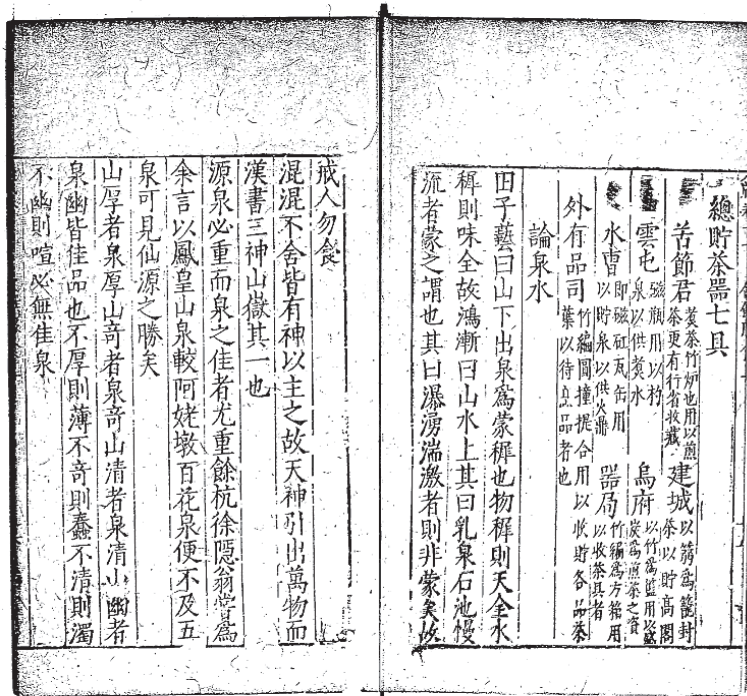 總貯茶器七具
苦節君 煑茶竹炉也用以煎茶更有行省收藏 建城 以篛爲籠封茶以貯高閣
雲屯 磁瓶用以杓泉以供煑水 烏府 以竹爲籃用以盛炭爲煎茶之資
水曹 即磁缸瓦缶用以貯泉以供火鼎 器局 竹編爲方箱用以收茶具者
外有品司 竹編圓撞提合用以收貯各品茶葉以待烹品者也
論泉水
田子藝曰山下出泉爲蒙穉也物穉則天全水
穉則味全故鴻漸曰山水上其曰乳泉石池慢
流者蒙之謂也其曰瀑湧湍激者則非蒙矣故
戒人勿食
混混不舍皆有神以主之故天神引出萬物而
漢書三神山嶽其一也
源泉必重而泉之佳者尤重餘杭徐隱翁嘗爲
余言以鳳皇山泉較阿姥墩百花泉便不及五
泉可見仙源之勝矣
山厚者泉厚山奇者泉奇山清者泉清山幽者
泉幽皆佳品也不厚則薄不奇則蠢不清則濁
不幽則喧必無佳泉